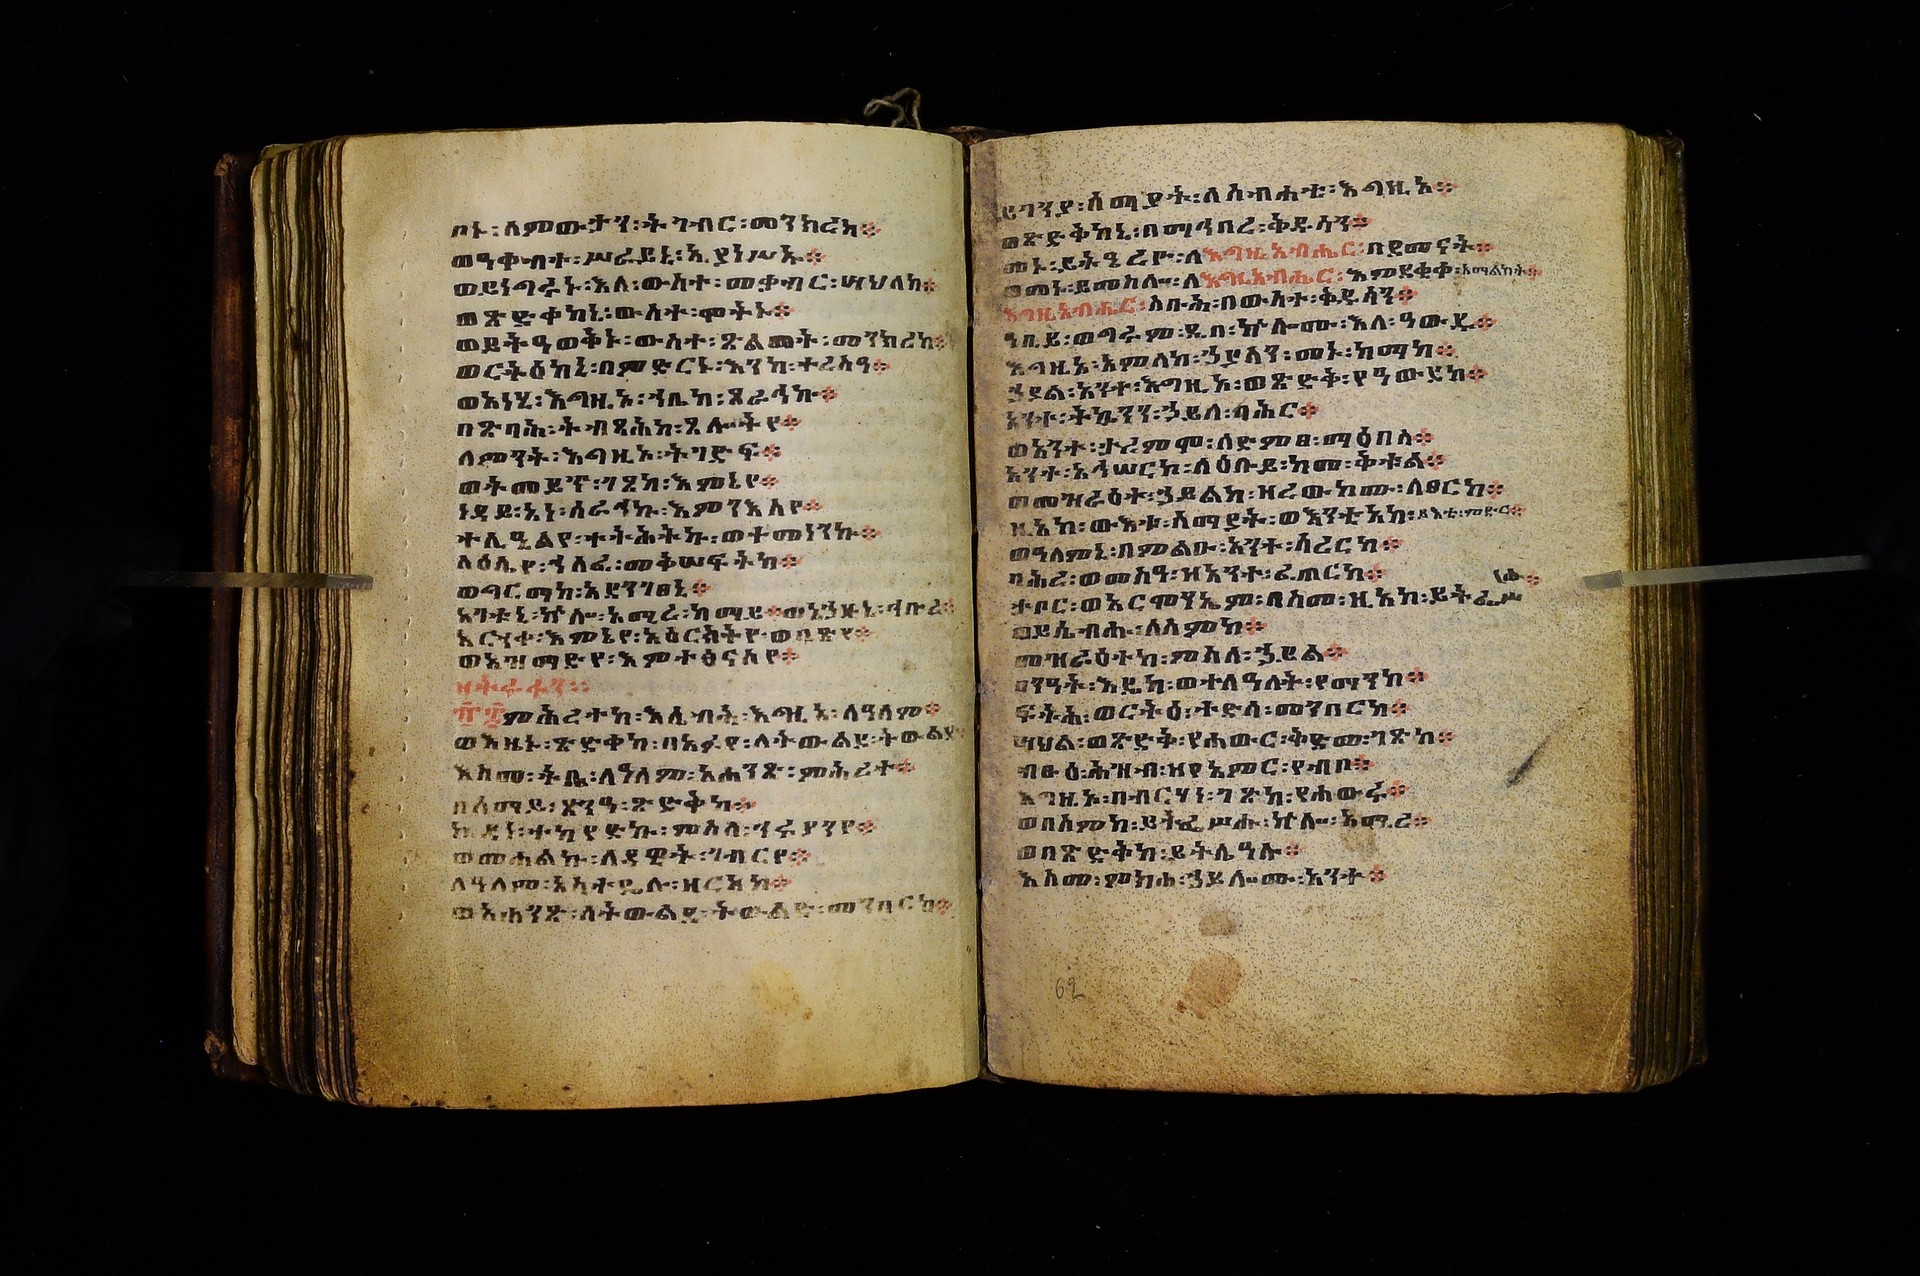 ቦኑ፡ለምውታን፡ትገብር፡መንክረከ።
ወዓቀብተ፡ሥራይኒ፡ኢያነሥኡ።
ወይነግሩኑ፡እለ፡ውስተ፡መቃብር፡ሣህለከ።
ወጽድቀከኒ፡ውስተ፡ሞትኑ።
ወይትዓወቅኑ፡ውስተ፡ጽልመት፡መንክረከ።
ወርትዕከኒ፡በምድርኑ፡እንከ፡ተረስዓ።
ወአነሂ፡እግዚኦ፡ኀቤከ፡ጸራኅኩ።
በጽባሕ፡ትብጻሕከ፡ጸሎትየ።
ለምንት፡እግዚኦ፡ትገድፍ።
ወትመይጥ፡ገጸከ፡እምኔየ።
ነዳይ፡አነ፡ሰራኅኩ፡እምንእስየ።
ተሊዒልየ፡ተትሕትኩ፡ወተመነንኩ።
ላዕሌየ፡ኀለፈ፡መቅሠፍትከ።
ወግርማከ፡አደንገፀኒ።
አገቱኒ፡ኵሎ፡አሚረ፡ከማይ።ወአኀዙኒ፡ኅቡረ።
አርኀቀ፡እምኔየ፡አዕርክትየ፡ወቢጽየ።
ወአዝማድየ፡እምተፅናስየ።
፹፰ምሕረተከ፡እሴብሕ፡እግዚኦ፡ለዓለም።
ወእዜኑ፡ጽድቀከ፡በአፉየ፡ለትውልደ፡ትውልድ።
እስመ፡ትቤ፡ለዓለም፡አሐንጽ፡ምሕረተ።
በሰማይ፡ጸንዓ፡ጽድቅከ።
ኪዳነ፡ተካየድኩ፡ምስለ፡ኅሩያንየ።
ወመሐልኩ፡ለዳዊት፡ገብርየ።
ለዓለም፡አስተዴሉ፡ዘርአከ።
ወአሐንጽ፡ለትውልደ፡ትውልድ፡መንበርከ።
ይገንያ፡ሰማያት፡ለስብሐቲ፡እግዚኦ።
ወጽድቅከኒ፡በማኅበረ፡ቅዱሳን።
መኑ፡ይትዔረዮ፡ለእግዚአብሔር፡በደመናት።
ወመኑ፡ይመስሎ፡ለእግዚአብሔር፡እምደቂቀ፡አማልክት።
እግዚአብሔር፡ስቡሕ፡በውስተ፡ቅዱሳን።
ዓቢይ፡ወግሩም፡ዲበ፡ኵሎሙ፡እለ፡ዓውዱ።
እግዚኦ፡አምላከ፡ኃያላን፡መኑ፡ከማከ።
ኃያል፡አንተ፡እግዚኦ፡ወጽድቅ፡የዓውደከ።
አንተ፡ትኴንን፡ኃይለ፡ባሕር።
ወአንተ፡ታረምሞ፡ለድምፀ፡ማዕበላ።
አንተ፡አኅሠርከ፡ለዕቡይ፡ከመ፡ቅቱል።
ወመዝራዕተ፡ኃይልከ፡ዘረውከሙ፡ለፀርከ።
ዚአከ፡ውእቱ፡ሰማያት፡ወእንቲአከ፡ይእቲ፡ምድር።
ወዓለምኒ፡በምልዑ፡አንተ፡ሳረርከ።
ባሕረ፡ወመስዓ፡ዘአንተ፡ፈጠርከ።
ታቦር፡ወአርሞንኤም፡በስመ፡ዚአከ፡ይትፌሥሑ።
ወይሴብሑ፡ለስምከ።
መዝራዕትከ፡ምስለ፡ኃይል።
ፍትሕ፡ወርትዕ፡ተድላ፡መንበርከ።
ሣህል፡ወጽድቅ፡የሐውር፡ቅድመ፡ገጽከ።
ብፁዕ፡ሕዝብ፡ዘየአምር፡የብቦ።
እግዚኦ፡በብርሃነ፡ገጽከ፡የሐውሩ።
ወበስምከ፡ይትፌሥሑ፡ኵሎ፡አሚረ።
ወበጽድቅከ፡ይትሌዓሉ።
እስመ፡ምክሐ፡ኃይሎሙ፡አንተ።
62